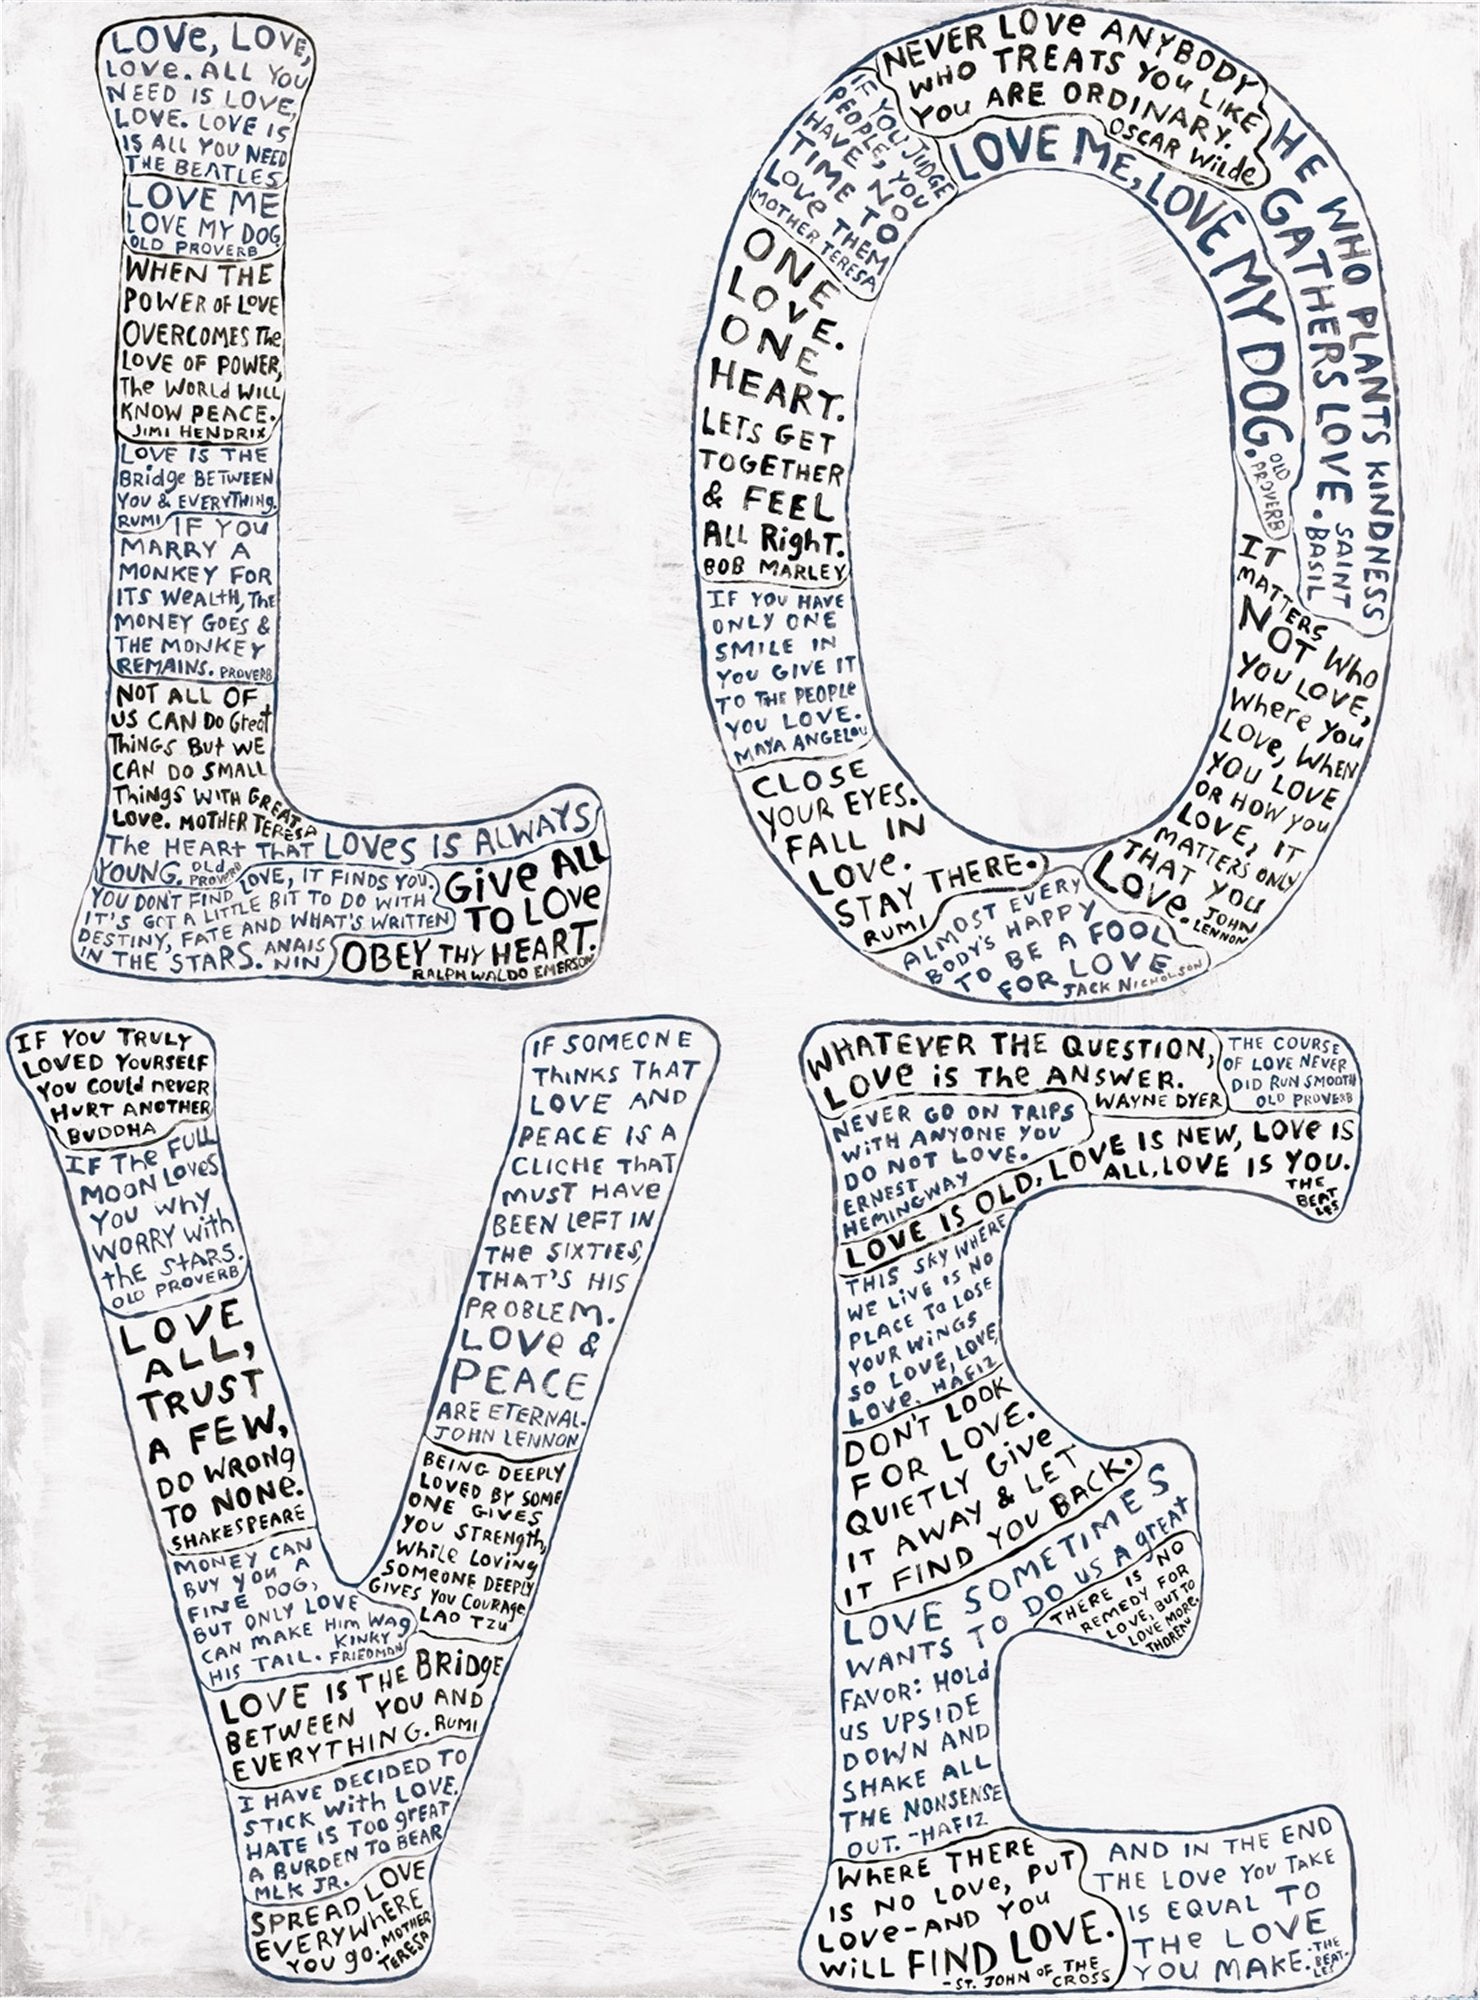 LOVe, LOVe,
LOVe. ALL YOU
NEED IS LOVE,
LOVE. LOVE IS
IS ALL YOU NEED
THE BEATLES
LOVE ME
LOVE MY DOG
OLD PROVERB
WHEN THE
POWER OF LOVE
OVERCOMES The
LOVE OF POWER,
The WORLd WILL
KNOW PEACE.
JIMI HENDRIX
LOVE IS THE
Bridge BETWEEN
YOU & EVERYTHING.
RUMI
IF YOU
MARRY A
MONKEY FOR
ITS WeALtH, The
MONEY GOES &
THE MONKEY
REMAINS. PROVERB
NOT ALL OF
US CAN Do Great
ThiNGS But WE
CAN DO SMALL
Things WITH GREAT
Love. MOTHER TERESA
A
The HEARt THAT LOVes IS ALWAYS
YOUNG. OLd
PROVERB
LOVE, IT FINDS YOU.
YOU DON'T FIND
IT'S GOT A LITTLE BIT TO DO WITH
DESTINY, FATE AND WHAT'S WRITTEN
IN THE STARS. ANAIS
NIN
GiVe ALL
TO LOVe
OBEY THY HEART.
RALPH WALDO EMERSON
NEVER LOVe ANYBODY
WHO TREATS YOU LIKE
YOU ARE ORDINARY.
OSCAR WiLde
IF YOU JUDGE
PEOPLE, YOU
HAVE NO
TIME TO
LOVe THEM
MOTHER TERESA
LOVE ME, LOVE MY DOG.
OLD
PROVERB
HE WHO PLANTS KINDNESS
GATHERS LOVE. SAINT
BASIL
ONE
LOVE.
ONE
HEART.
LETS GET
TOGETHER
& FEEL
ALL RighT.
BOB MARLEY
IF YOU HAVE
ONLY ONE
SMILE IN
YOU GIVE IT
TO THE PEOPLe
YOU LOVE.
MAYA ANGELOU
CLOSE
YOUR EYES.
FALL IN
LOVe.
STAY THERE.
RUMI
IT
MATTERS
NOT WHO
YOU LOVE,
WHere YOU
LOVe, WHEN
YOU LOVE
OR HOW YOU
LOVE, IT
MATTERS ONLY
THAT YOU
LOVe. JOHN
LENNON
ALMOST EVERY
BODY'S HAPPY
TO BE A FOOL
FOR LOVE
JACK NICHOLSON
IF YOU TRULY
LOVED YOURSELF
YOU COULd never
HURT ANOTHER
BUDDHA
IF The FULL
MOON LOVeS
YOU WHY
WORRY with
the STARS.
OLD PROVERB
LOVE
ALL,
TRUST
A FEW,
DO WRONG
TO NONe.
SHAKESPEARE
MONEY CAN
BUY YOU A
FINE DOG,
BUT ONLY LOVE
CAN MAKE Him WAg
HIS TAIL. KINKY
FRIEDMAN
IF SOMEONE
ThiNKS THAT
LOVE AND
PEACE IS A
CLICHE THAT
MUST HAVe
BEEN LeFT IN
THe SIXTIES,
THAT'S HIS
PROBLEM.
LOVe &
PEACE
ARE ETERNAL.
JOHN LENNON
BEING DEEPLY
LOVED BY SOME
ONE GIVES
YOU STRENgth,
While LOVing
SOMeONE DEEPLY
GIVES YOU COURAge
LAO TZU
LOVE IS THE BRidge
BETWEEN YOU AND
EVERYTHING. RUMI
I HAVE DECIDED TO
STICK With LOVE.
HATE IS TOO gREAT
A BURDEN TO BEAR
MLK JR.
SPREAD LOVE
EVERYWHERE
YOU gO. MOTHER
TERESA
WHATEVER THE QUESTION,
LOVe iS The ANSWER.
WAYNE DYER
THE COURSE
OF LOVE NEVER
DID RUN SMOOTH
OLD PROVERB
NEVER GO ON TRIPS
WITH ANYONE YOU
DO NOT LOVE.
ERNEST
HEMINGWAY
LOVE IS OLD, LOVE IS NEW, LOVe IS
ALL, LOVE IS YOU.
THE
BEAT
LES
THIS SKY WHERE
WE LiVE IS NO
PLACE To LOSE
YOUR WINGS
SO LOVE, LOVE,
LOVe. HAFIZ
DON'T LOOK
FOR LOVE.
QUIETLY Give
IT AWAY & LET
IT FIND YOU BACK.
LOVE SOMETIMES
WANTS TO DO US A gREAt
FAVOR: HOLd
US UPSIDE
DOWN AND
SHAKE ALL
THE NONSENSE
OUT. -HAFIZ
THERE IS NO
REMEDY FOR
LOVE, BUT TO
LOVE MORE.
THOREAU
WHERE THERE
IS NO LOVe, PUT
LOVe-AND YOU
WiLL FIND LOVE.
-ST. JOHN OF THE
CROSS
AND IN THE END
THE LOVe YOU TAKE
IS EQUAL TO
THe LOVE
YOU MAKE. -THE
BEAT-
LES